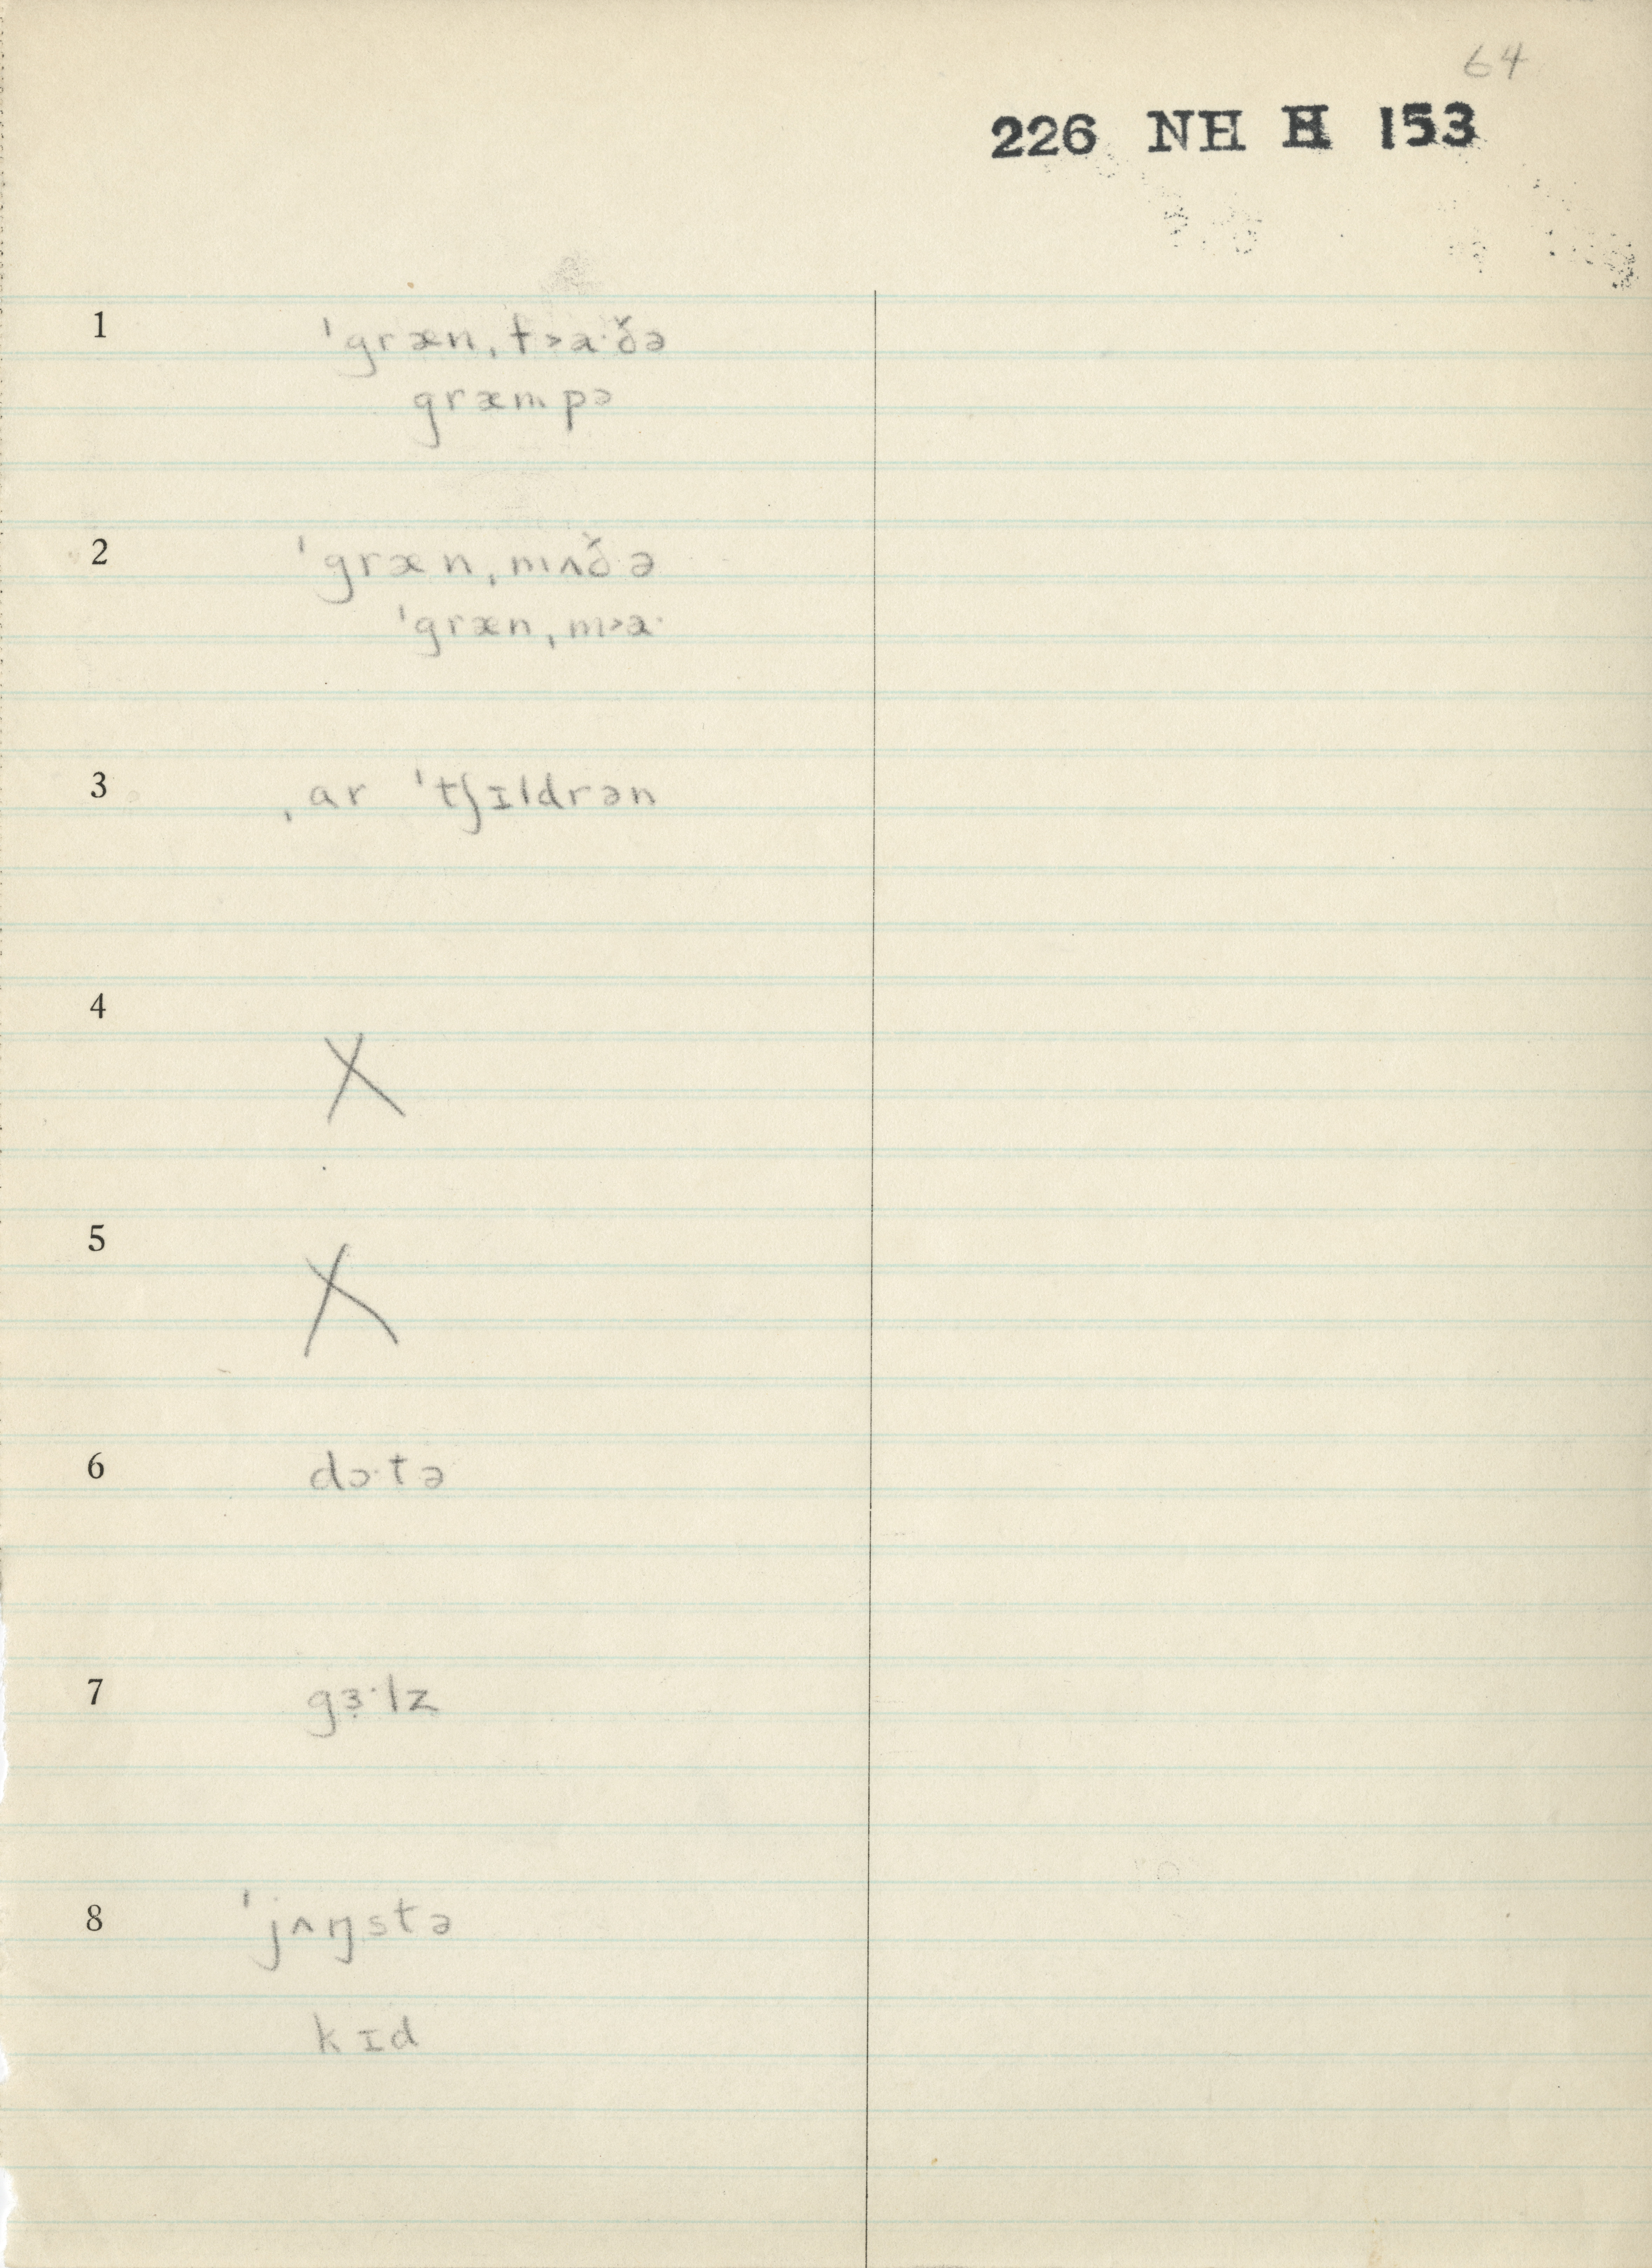 64
226 NH H 153
1 ˈgræn,f>a·ðə
græmpə
2 ˈgræn,mʌðə
ˈgræn,m>a·
3 ,ar ˈtʃɪldrən
4 X
5 X
6 dɔ·tə
7 gɜ̣·lz
8 ˈjʌŋstə
kɪd